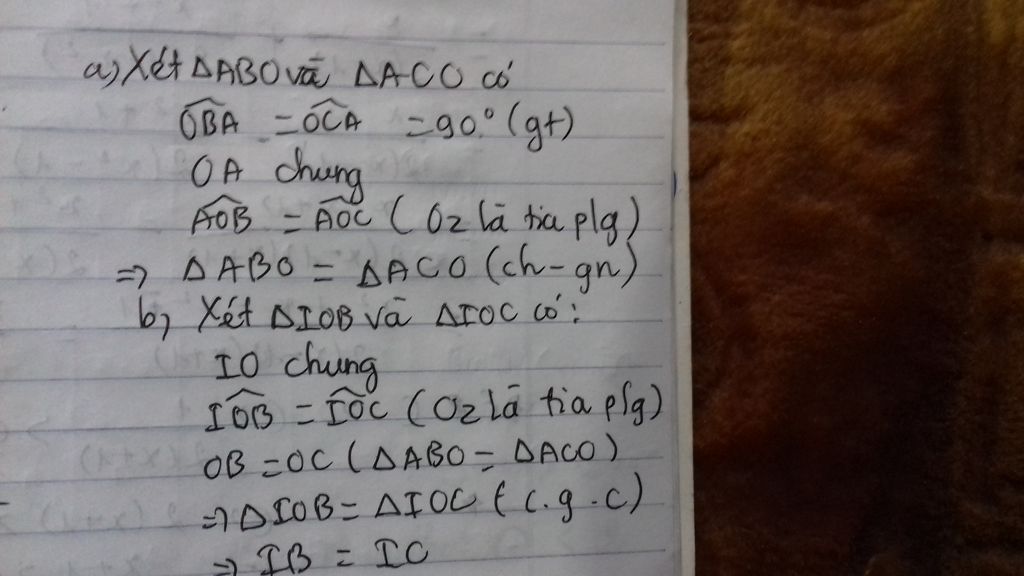 a, Xét ΔABO và ΔACO có
OBA = OCA = 90° (gt)
OA chung
AOB = AOC ( Oz là tia plg)
=> ΔABO = ΔACO (ch-gn)
b, Xét ΔIOB và ΔIOC có:
IO chung
IOB = IOC (Oz là tia plg)
OB = OC (ΔABO = ΔACO)
=> ΔIOB = ΔIOC ( c.g.c)
=> IB = IC